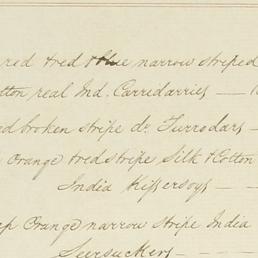 red & red & blue narrow striped
otton real Ind. Carridarries — 1
d broken stripe do. Turrodars —
Orange & red stripe Silk & Cotton
India Kissersoys — —
ep Orange narrow stripe India
Seersuckers — —